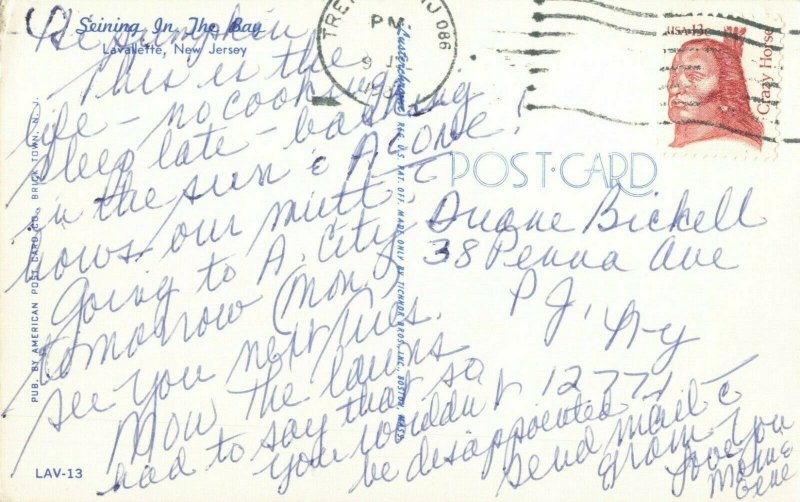 Seining In The Bay
Lavallette, New Jersey
Hi Pumpkin
This is the
life - no cooking
sleep late - basking
in the sun & Alone!
hows our mutt?
Going to A. City
tomorrow (Mon)
see you next Tues.
Mow the lawns
had to say that so
you wouldn't
be disappointed
Send mail
Gram
Love You
Mom &
Gene
POST CARD
Duane Bickell
38 Penna Ave
P J, Ny
12771
PM
NJ 086
USA 13c
Crazy Horse
PUB. BY AMERICAN POST CARD CO., BRICK TOWN, N. J.
REG. U.S. PAT. OFF. MADE ONLY BY TICHNOR BROS., INC., BOSTON, MASS.
LAV-13